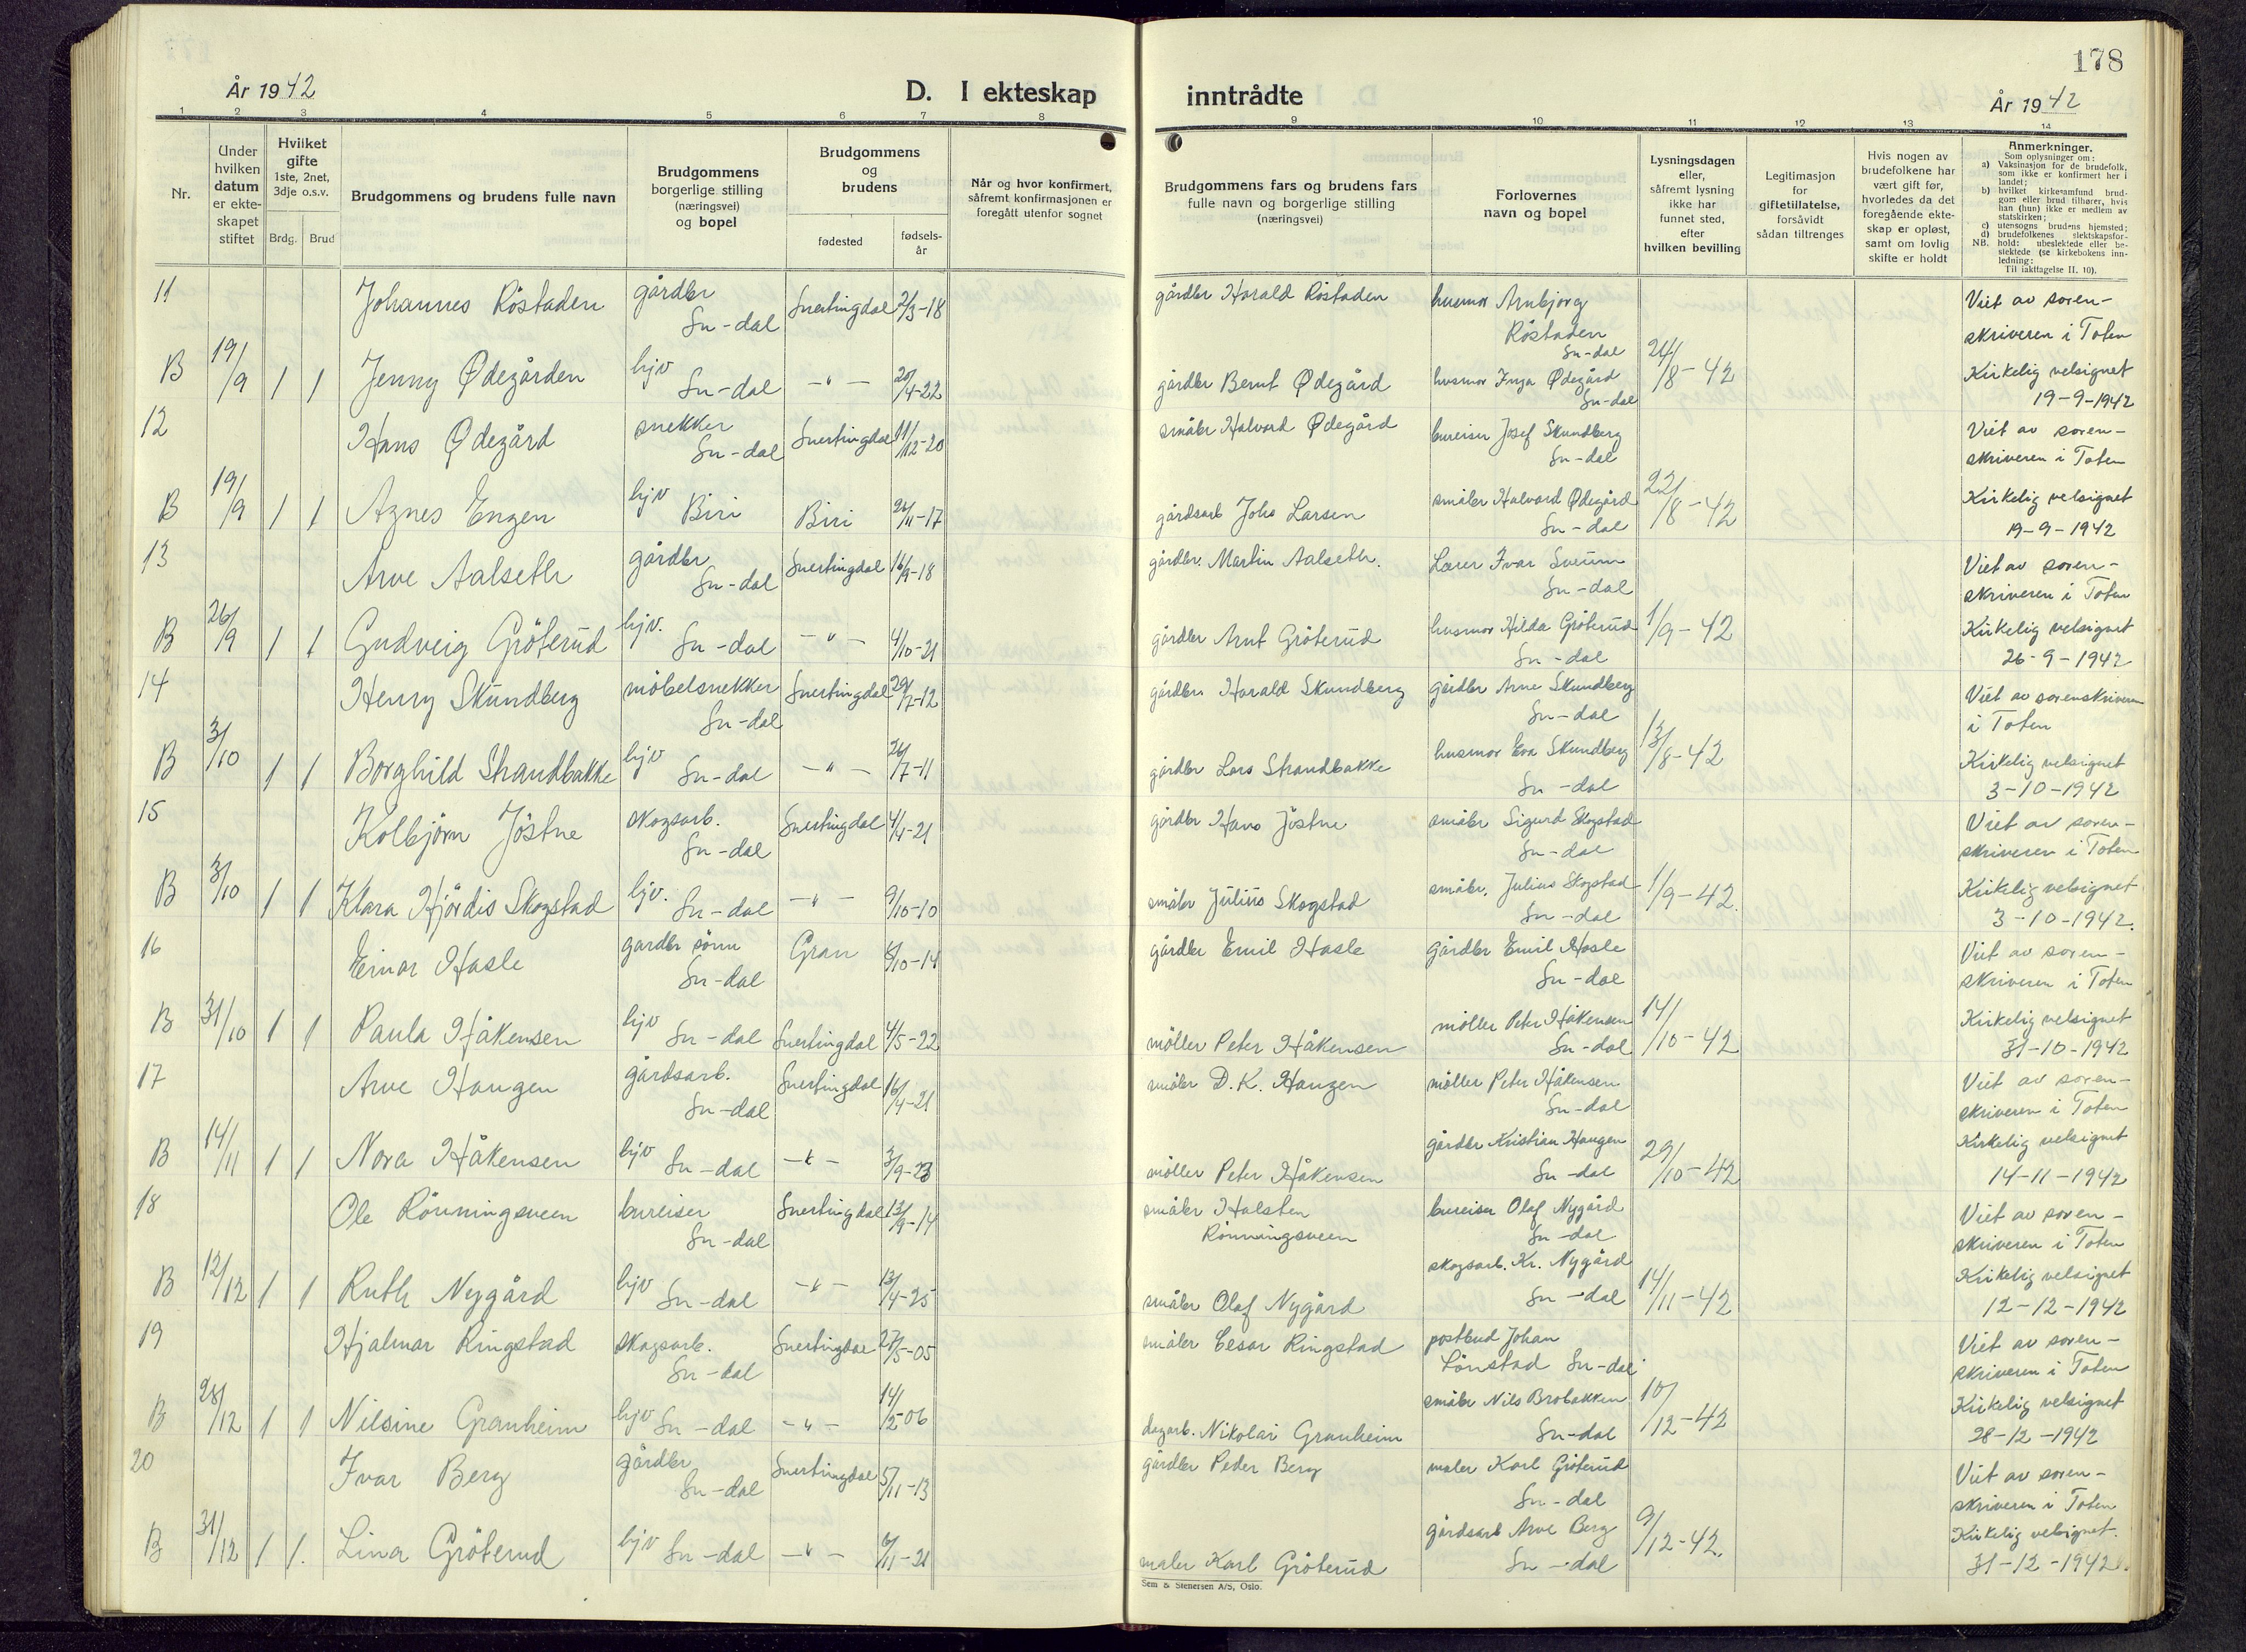 178
År 1942
D. I ekteskap
inntrådte
År 1942
1 2 3 4 5 6 7 8 9 10 11 12 13 14
Nr.
Under
hvilken
datum
er ekte-
skapet
stiftet
Hvilket
gifte
1ste, 2net,
3dje o.s.v.
Brdg. Brud
Brudgommens og brudens fulle navn
Brudgommens
borgerlige stilling
(næringsvei)
og bopel
Brudgommens
og
brudens
fødested
fødsels-
år
Når og hvor konfirmert,
såfremt konfirmasjonen er
foregått utenfor sognet
Brudgommens fars og brudens fars
fulle navn og borgerlige stilling
(næringsvei)
Forlovernes
navn og bopel
Lysningsdagen
eller,
såfremt lysning
ikke har
funnet sted,
efter
hvilken bevilling
Legitimasjon
for
giftetillatelse,
forsåvidt
sådan tiltrenges
Hvis nogen av
brudefolkene har
vært gift før,
hvorledes da det
foregående ekte-
skap er opløst,
samt om lovlig
skifte er holdt
Anmerkninger.
Som oplysninger om:
a) Vaksinasjon for de brudefolk,
som ikke er konfirmert her i
landet;
b) hvilket kirkesamfund brud-
gom eller brud tilhører, hvis
han (hun) ikke er medlem av
statskirken;
c) utensogns brudens hjemsted;
d) brudefolkenes slektskapsfor-
NB. hold: ubeslektede eller be-
slektede (se kirkebokens inn-
ledning:
Til iakttagelse II. 10).
11 Johannes Röstaden gårdbr Sn-dal Snertingdal 2/3-18 gårdbr Harald Röstaden husmor Arnbjørg Röstaden Sn-dal Viet av soren-
skriveren i Toten
B 19/9 1 1 Jenny Ødegården hjv Sn-dal -"- 20/4-22 gårdbr Bernt Ødegård husmor Inga Ødegård Sn-dal 24/8-42 Kirkelig velsignet
19-9-1942
12 Hans Ødegård snekker Sn-dal Snertingdal 11/12-20 småbr Halvard Ødegård bureiser Josef Skundberg Sn-dal Viet av soren-
skriveren i Toten
B 19/9 1 1 Agnes Engen hjv Biri Biri /11-17 gårdsarb Johs Larsen småbr Halvard Ødegård Sn-dal 22/8-42 Kirkelig velsignet
19-9-1942
13 Arve Aalseth gårdbr Sn-dal Snertingdal 16/9-18 gårdbr. Martin Aalseth. Lærer Ivar Sveum Sn-dal Viet av soren-
skriveren i Toten
B 26/9 1 1 Gudveig Gröterud hjv. Sn-dal -"- 4/10-21 gårdbr Arnt Gröterud husmor Hilda Gröterud Sn-dal 1/9-42 Kirkelig velsignet
26-9-1942
14 Henry Skundberg möbelsnekker Sn-dal Snertingdal 29/7-12 gårdbr. Harald Skundberg gårdbr Arne Skundberg Sn-dal Viet av sorenskriveren
i Toten
B 3/10 1 1 Borghild Strandbakke hjv Sn-dal -"- 26/7-11 gårdbr Lars Strandbakke husmor Eva Skundberg Sn-dal 13/8-42 Kirkelig velsignet
3-10-1942
15 Kolbjörn Jöstne skogsarb. Sn-dal Snertingdal 4/4-21 gårdbr Hans Jöstne småbr Sigurd Skogstad Sn-dal Viet av soren-
skriveren i Toten
B 3/10 1 1 Klara Hjördis Skogstad hjv. Sn-dal -"- 9/10-10 småbr Julius Skogstad småbr. Julius Skogstad Sn-dal 1/9-42. Kirkelig velsignet
3-10-1942.
16 Einar Hasle gardbr sönn Sn-dal Gran /10-14 gårdbr Emil Hasle gårdbr Emil Hasle Sn-dal Viet av soren-
skriveren i Toten
B 31/10 1 1 Paula Håkensen hjv Sn-dal Snertingdal 4/5-22 möller Peter Håkensen möller Peter Håkensen Sn-dal 14/10-42 Kirkelig velsignet
31-10-1942
17 Arve Haugen gårdsarb. Sn-dal Snertingdal 16/4-21 småbr D.K. Haugen möller Peter Håkensen Sn-dal Viet av soren-
skriveren i Toten
B 14/11 1 1 Nora Håkensen hjv Sn-dal -"- 3/9-23 möller Peter Håkensen gårdbr Kristian Haugen Sn-dal 29/10-42 Kirkelig velsignet
14-11-1942
18 Ole Rönningsveen bureiser Sn-dal Snertingdal 13/9-14 småbr Halsten Rönningsveen bureiser Olaf Nygård Sn-dal Viet av soren-
skriveren i Toten
B 12/12 1 1 Ruth Nygård hjv Sn-dal -"- 13/4-25 småbr Olaf Nygård skogsarb. Kr. Nygård Sn-dal 14/11-42 Kirkelig velsignet
12-12-1942
19 Hjalmar Ringstad skogsarb. Sn-dal Snertingdal 27/5-05 småbr Cesar Ringstad postbud Johan Lönstad Sn-dal Viet av soren-
skriveren i Toten
B 28/12 1 1 Nilsine Granheim hjv Sn-dal -"- 14/2-06 dagarb. Nikolai Granheim småbr Nils Brobakken Sn-dal 10/12-42 Kirkelig velsignet
28-12-1942
20 Ivar Berg gårdbr Sn-dal Snertingdal 5/11-13 gårdbr Peder Berg maler Karl Gröterud Sn-dal Viet av soren-
skriveren i Toten
B 31/12 1 1. Lina Gröterud hjv Sn-dal -"- /11-21 maler Karl Gröterud gårdsarb Arve Berg Sn-dal 9/12-42. Kirkelig velsignet.
31-12-1942.
Sem & Stenersen A/S, Oslo.